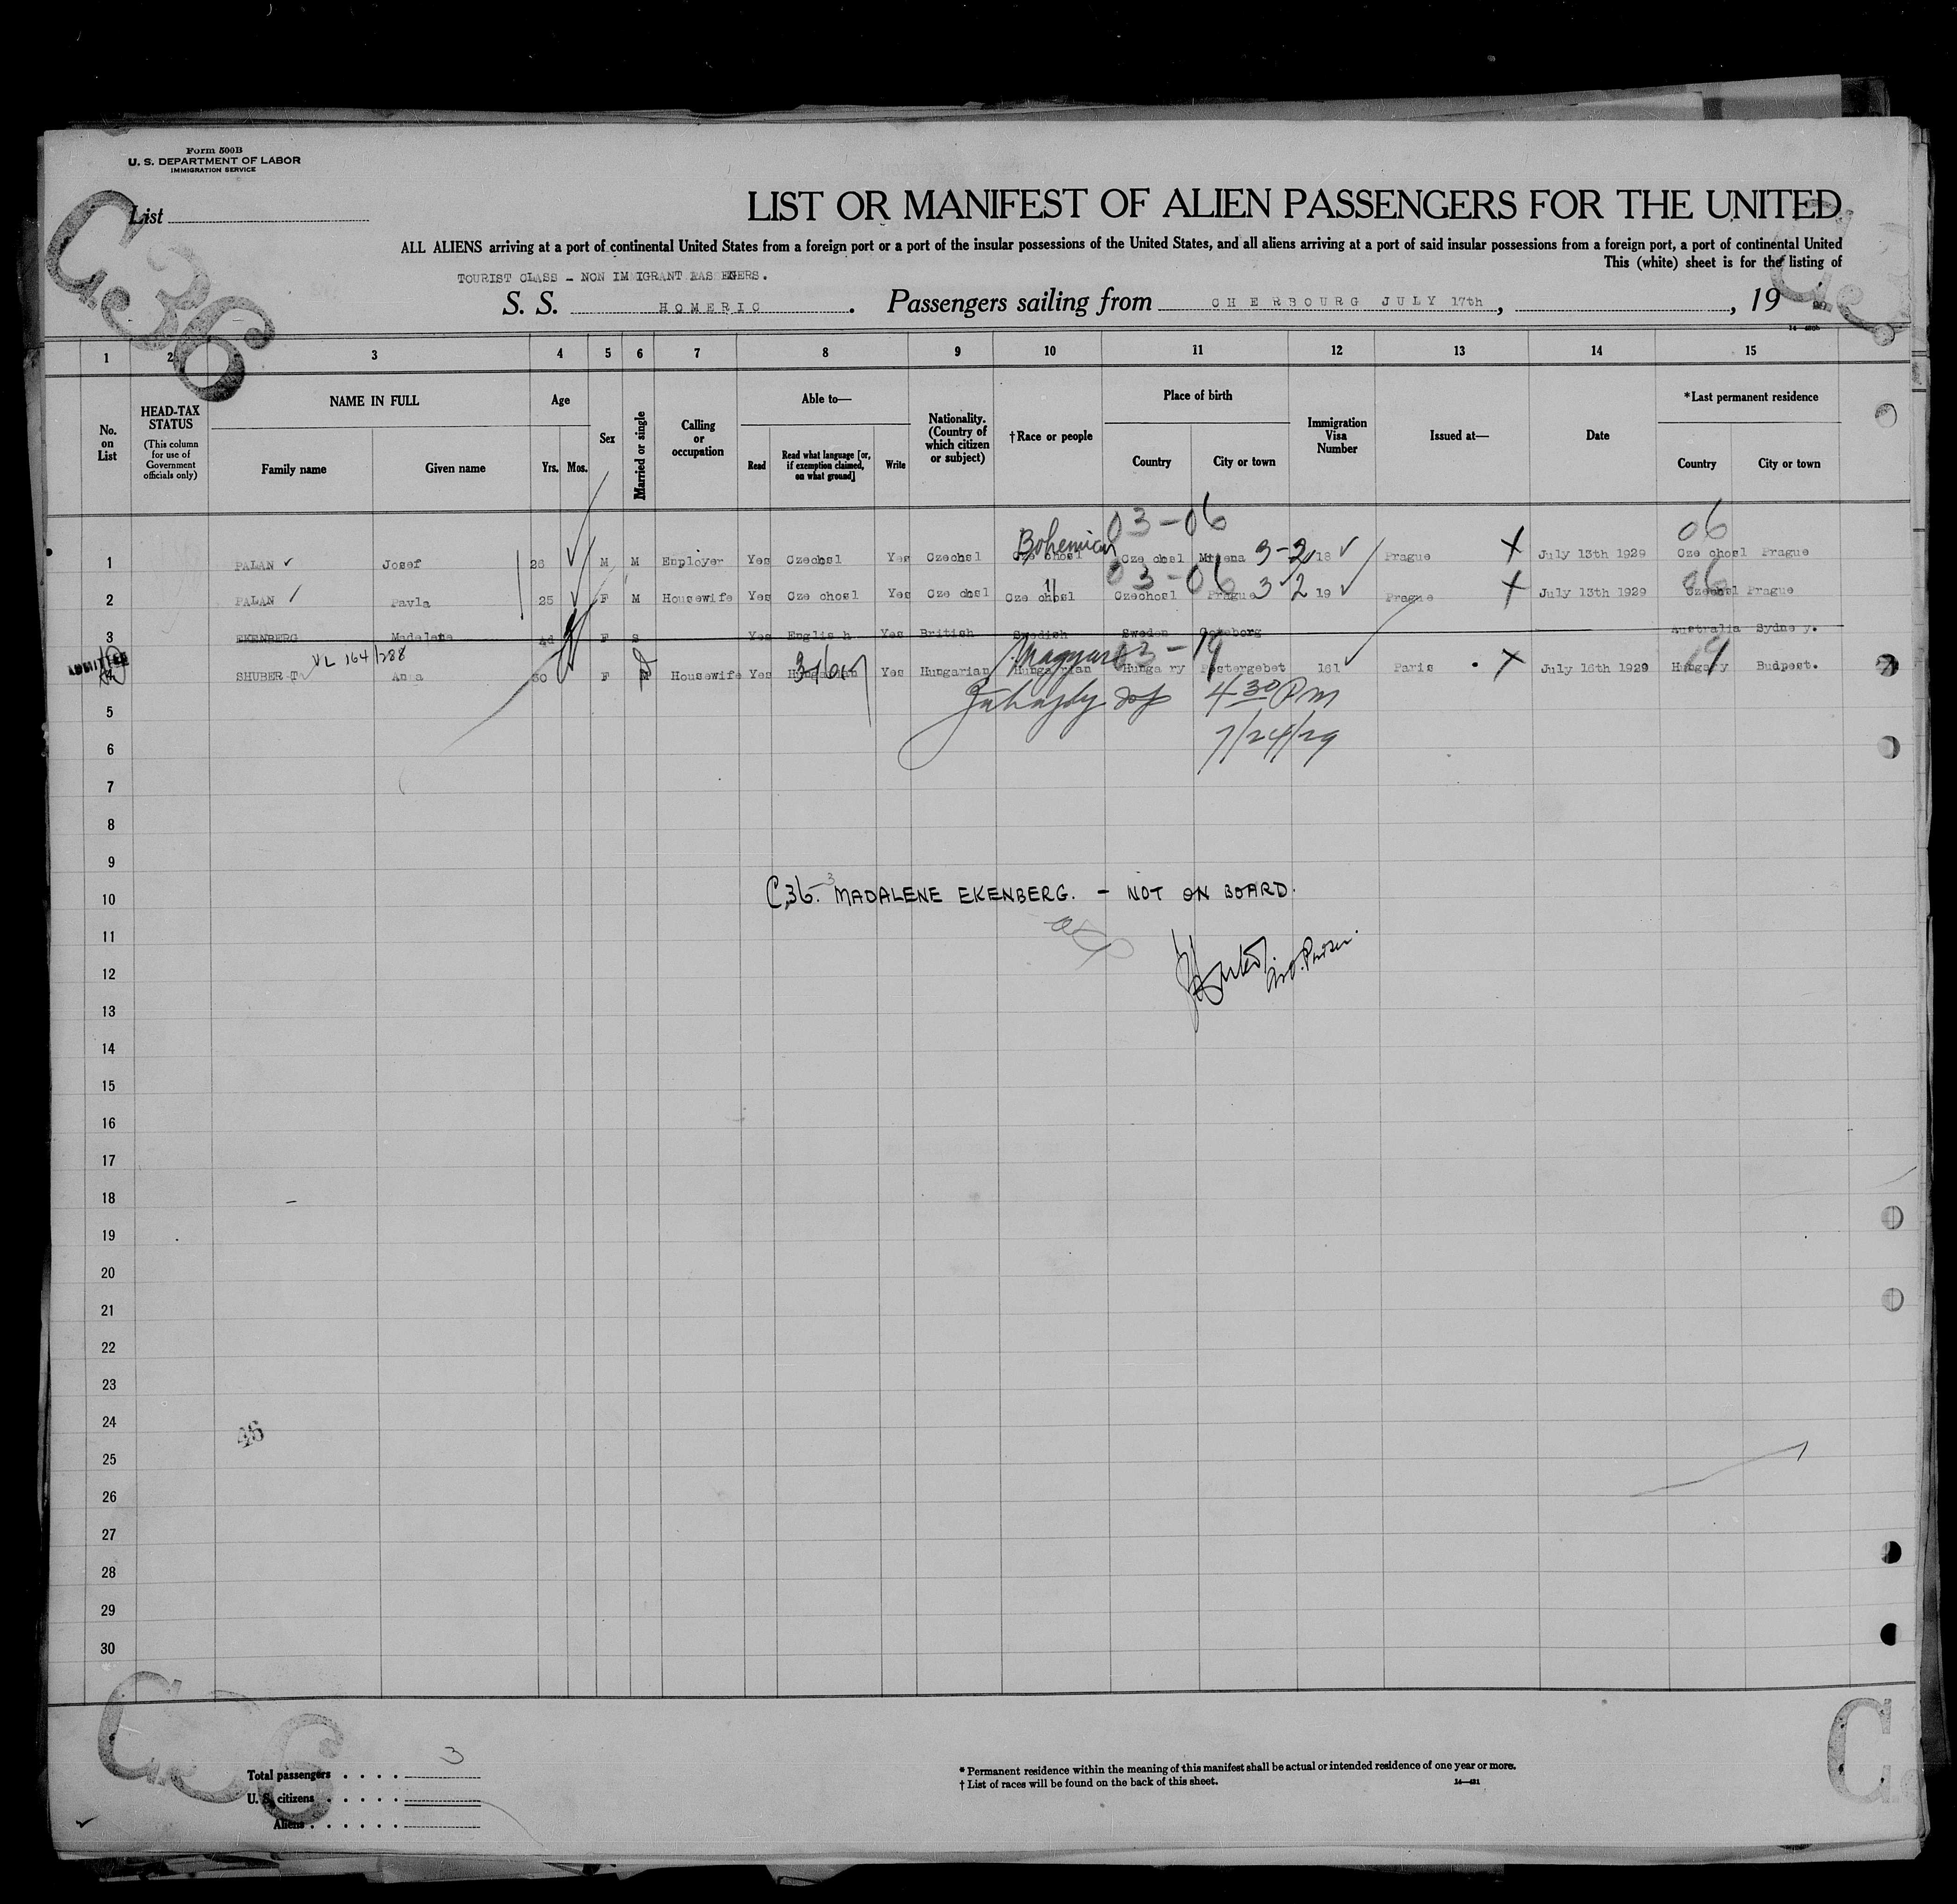 Form 500B
U. S. DEPARTMENT OF LABOR
IMMIGRATION SERVICE
C.36
List
LIST OR MANIFEST OF ALIEN PASSENGERS FOR THE UNITED
ALL ALIENS arriving at a port of continental United States from a foreign port or a port of the insular possessions of the United States, and all aliens arriving at a port of said insular possessions from a foreign port, a port of continental United
This (white) sheet is for the listing of
TOURIST CLASS - NON IM IGRANT PASSENGERS.
S. S. HOMERIC. Passengers sailing from CHERBOURG JULY 17th, , 19
1 2 3 4 5 6 7 8 9 10 11 12 13 14 15
No. on List
HEAD-TAX STATUS (This column for use of Government officials only)
NAME IN FULL Family name Given name
Age Yrs. Mos.
Sex
Married or single
Calling or occupation
Able to— Read Read what language [or, if exemption claimed, on what ground] Write
Nationality. (Country of which citizen or subject)
†Race or people
Place of birth Country City or town
Immigration Visa Number
Issued at—
Date
*Last permanent residence Country City or town
03-06 06
Bohemian
1 PALAN ✓ Josef 26 M M Employer Yes Czechsl Yes Czechsl Cze chosl Cze chsl 3-2 18 ✓ Prague X July 13th 1929 Cze chosl Prague
03-06 06
2 PALAN ✓ Pavla 25 F M Housewife Yes Cze chosl Yes Cze chsl Cze chosl " Czechosl Prague 3-2 19 ✓ Prague X July 13th 1929 Czechsl Prague
3 EKENBERG Madalena 44 F S Yes Englis h Yes British Swedish Sweden Goteborg Australia Sydne y.
VL 164/288 Magyar 03-19 19
ADMITTED
4 SHUBER T ✓ Anna 50 F M Housewife Yes Hungarian Yes Hungarian Hunga rian Hunga ry Pestergebet 161 ✓ Paris X July 16th 1929 Hungary Budpest.
4 30 PM
7/24/29
5
6
7
8
9
C,36-3 MADALENE EKENBERG. - NOT ON BOARD.
10
11
12
13
14
15
16
17
18
19
20
21
22
23
24
25
26
27
28
29
30
C.36
C
Total passengers . . . . 3
U. S. citizens . . . . .
Aliens . . . . . .
* Permanent residence within the meaning of this manifest shall be actual or intended residence of one year or more.
† List of races will be found on the back of this sheet.